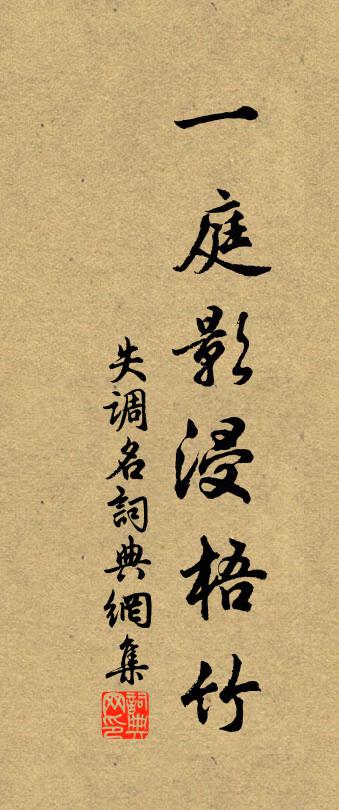 一庭影浸梧竹
失調名詞典網集
詞典
网印